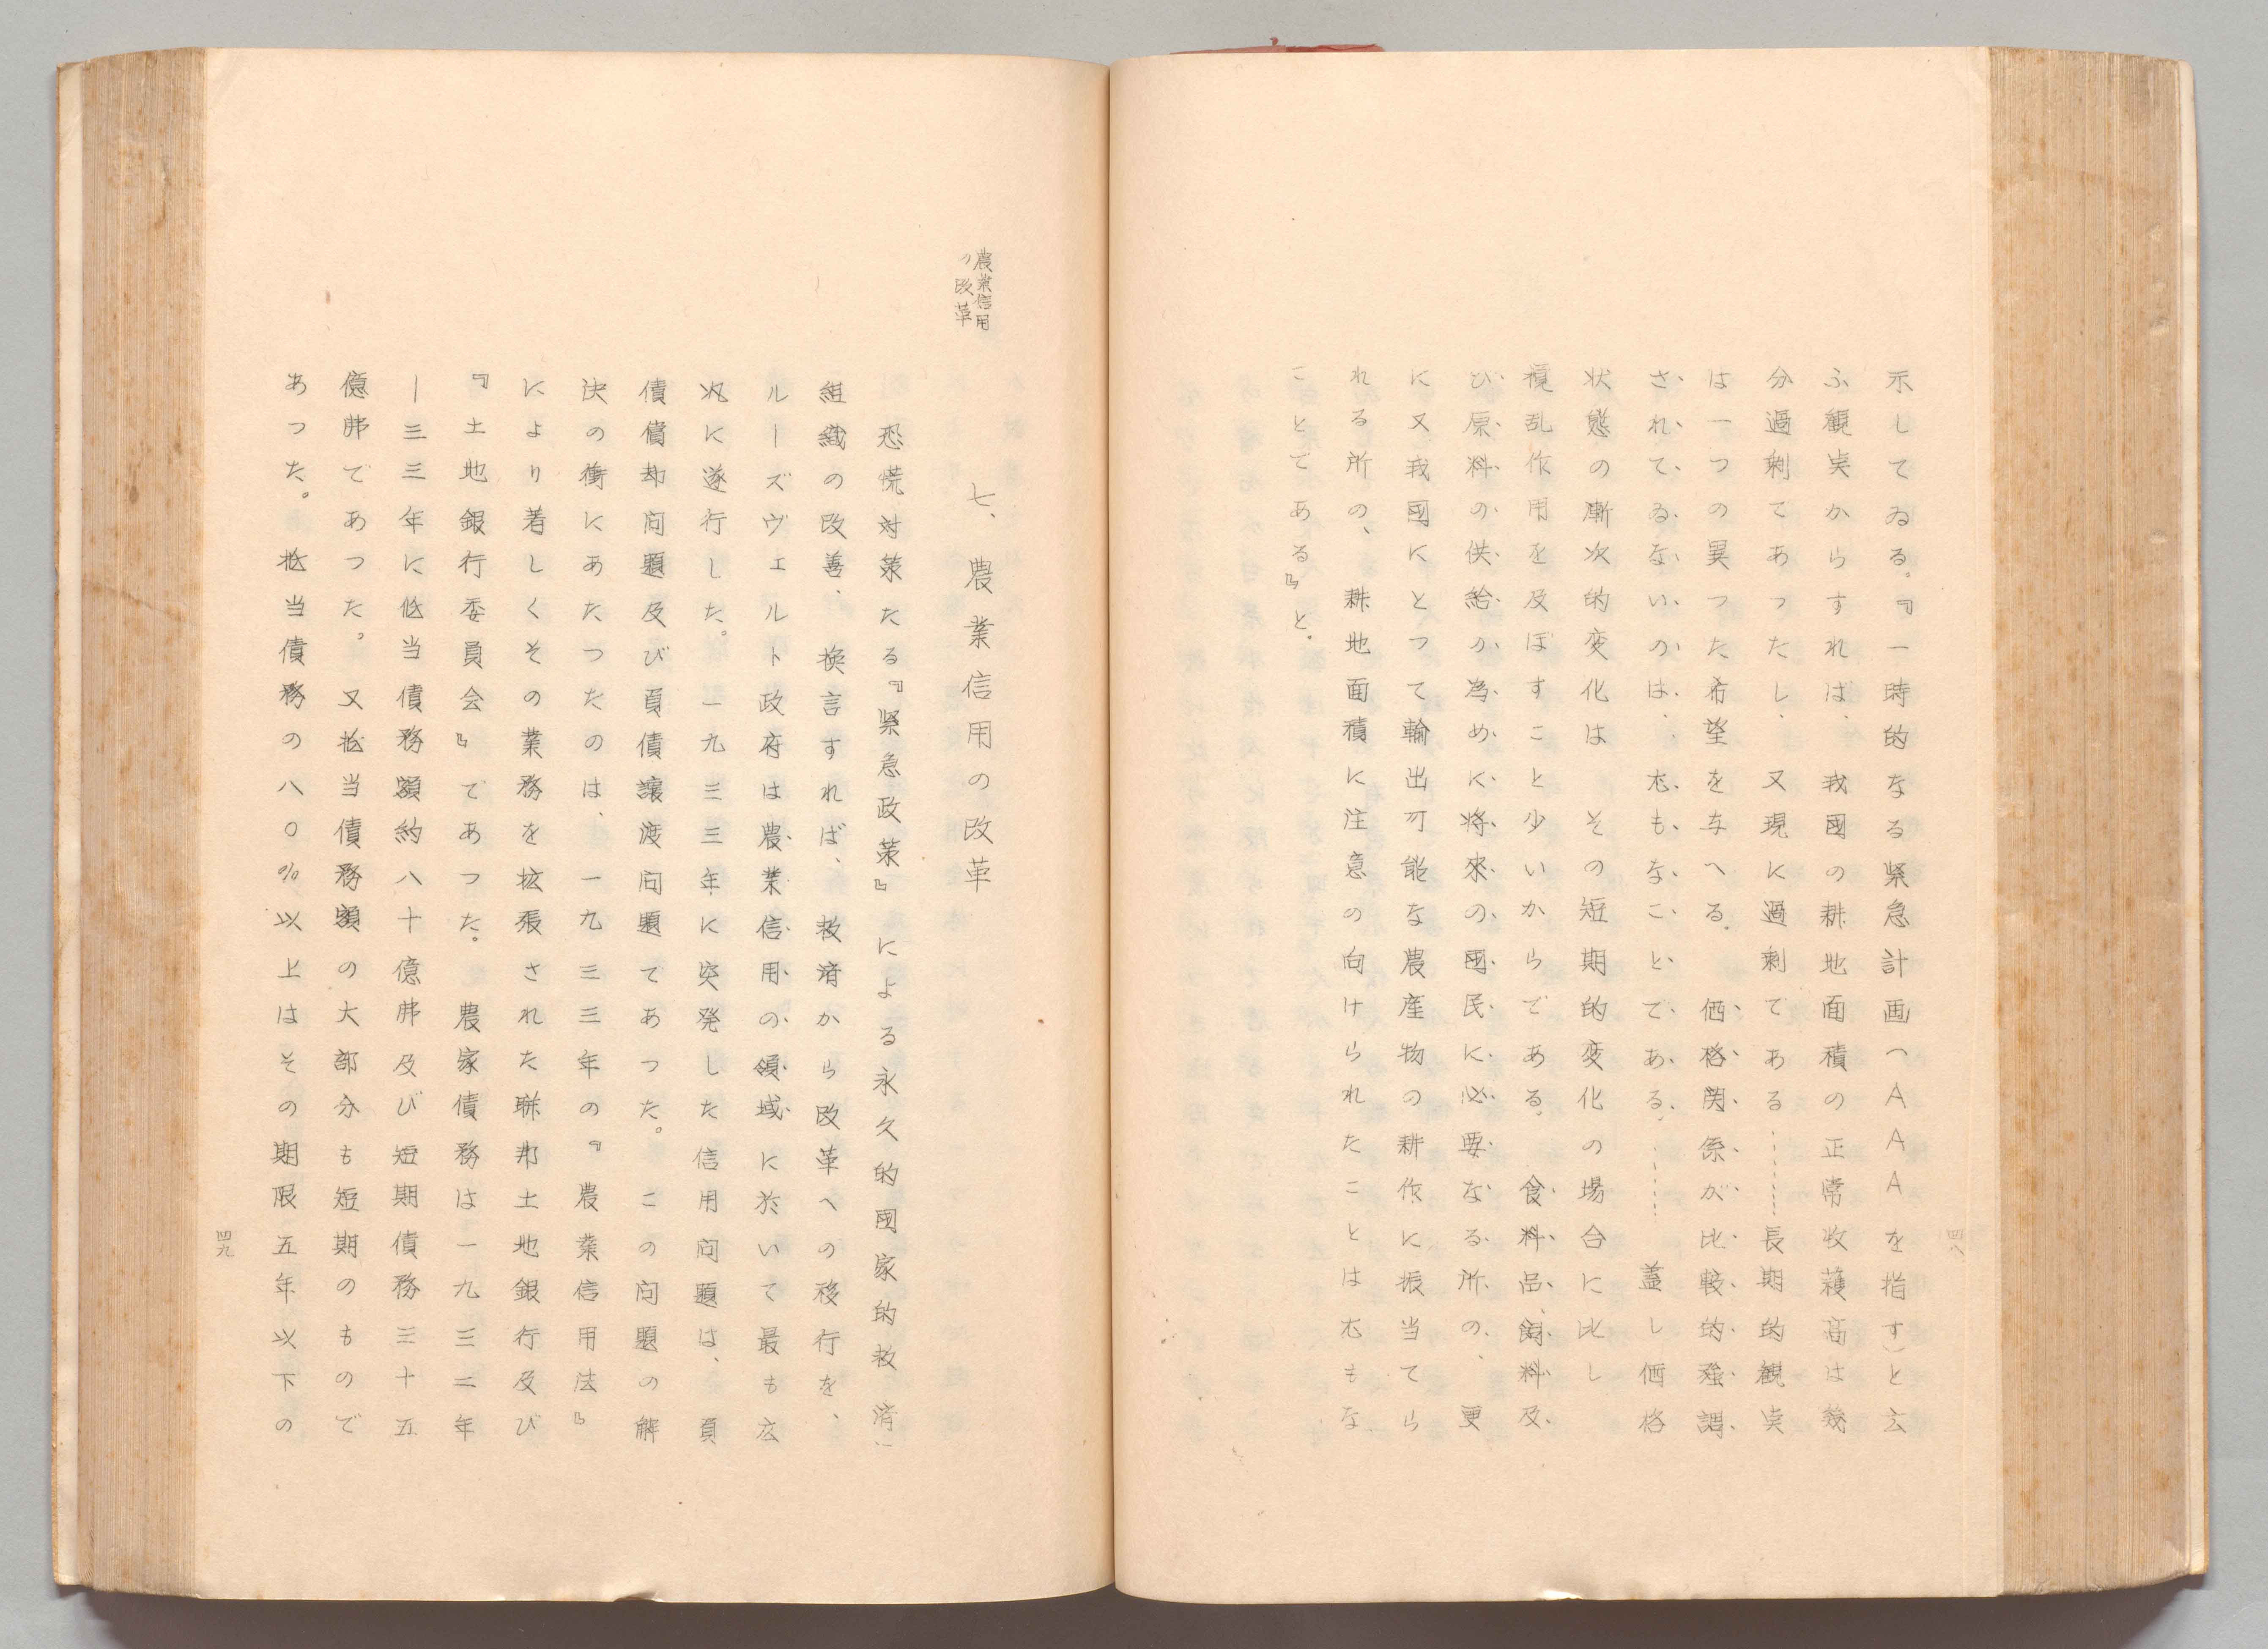 示してゐる。『一時的なる緊急計画(AAAを指す)と云
ふ観点からすれば、我國の耕地面積の正常收穫高は幾
分過剰であつたし、又現に過剰である………長期的観点
は一つの異つた希望を与へる。価格関係が比較的強調
されてゐないのは、尤もなことである。………蓋し価格
状態の漸次的変化は その短期的変化の場合に比し
攪乱作用を及ぼすこと少いからである。食料品、飼料及
び原料の供給の為めに将來の國民に必要なる所の、更
に又我國にとつて輸出可能な農産物の耕作に振当てら
れる所の、耕地面積に注意の向けられたことは尤もな
ことである』と。
四八
農業信用
の改革
七、農業信用の改革
恐慌対策たる『緊急政策』による永久的國家的救済、
組織の改善、換言すれば、救済から改革への移行を、
ルーズヴェルト政府は農業信用の領域に於いて最も広
汎に遂行した。一九三三年に突発した信用問題は、負
債償却問題及び負債譲渡問題であつた。この問題の解
決の衝にあたつたのは、一九三三年の『農業信用法』
により著しくその業務を拡張された聯邦土地銀行及び
『土地銀行委員会』であつた。農家債務は一九三二年
―三三年に抵当債務額約八十億弗及び短期債務三十五
億弗であつた。又抵当債務額の大部分も短期のもので
あつた。抵当債務の八〇%以上はその期限五年以下の
四九